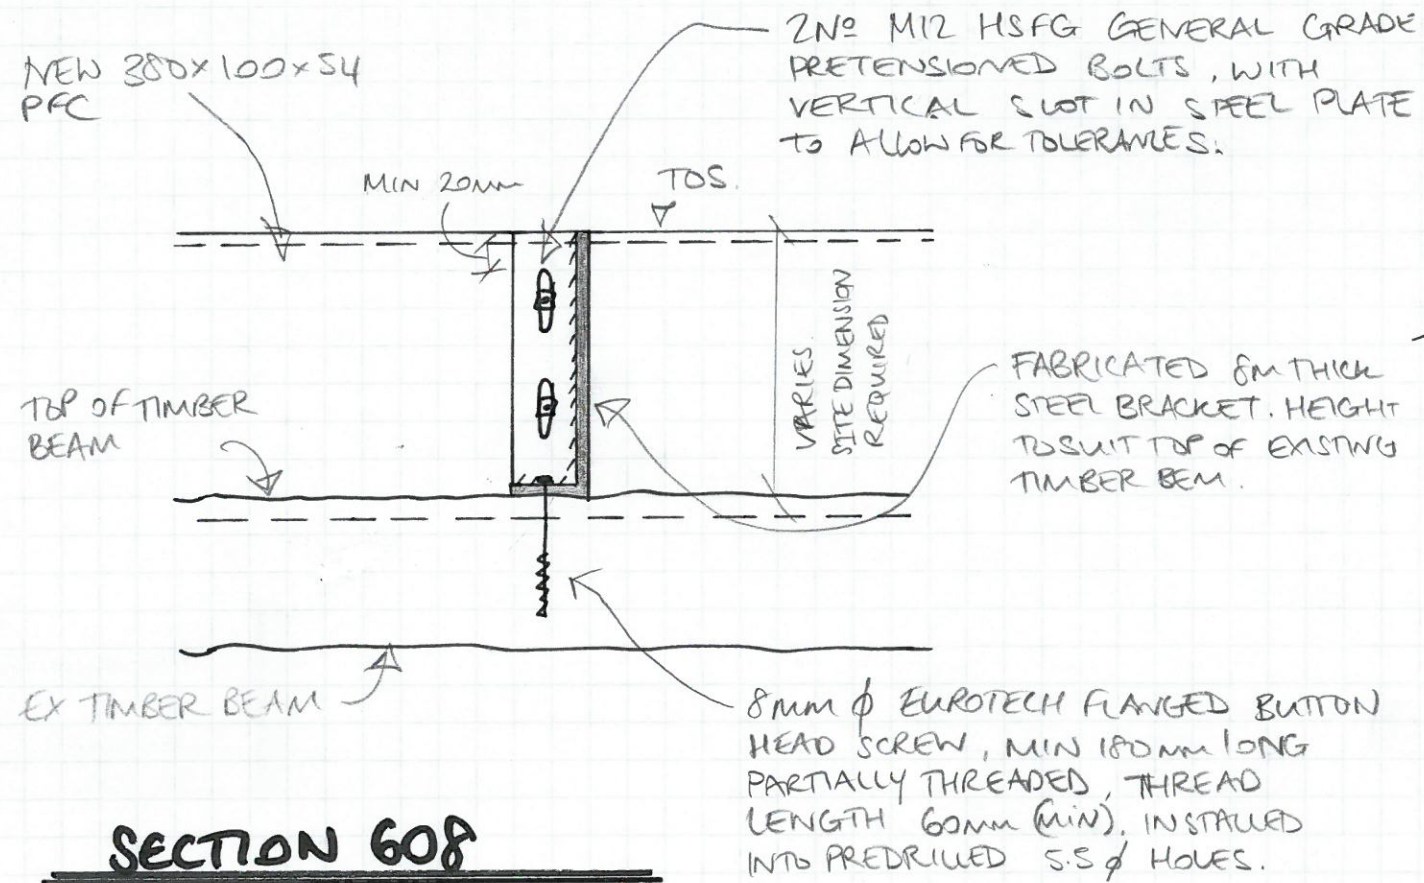 2Nº M12 HSFG GENERAL GRADE
PRETENSIONED BOLTS, WITH
VERTICAL SLOT IN STEEL PLATE
TO ALLOW FOR TOLERANCES.
NEW 380x100x54
PFC
MIN 20mm
TOS.
VARIES.
SITE DIMENSION
REQUIRED
FABRICATED 8M THICK
STEEL BRACKET. HEIGHT
TO SUIT TOP OF EXISTING
TIMBER BEM.
TOP OF TIMBER
BEAM
EX TIMBER BEAM
8mm ϕ EUROTECH FLANGED BUTTON
HEAD SCREW, MIN 180mm LONG
PARTIALLY THREADED, THREAD
LENGTH 60mm (MIN). INSTALLED
INTO PREDRILLED 5.5 ϕ HOLES.
SECTION 608